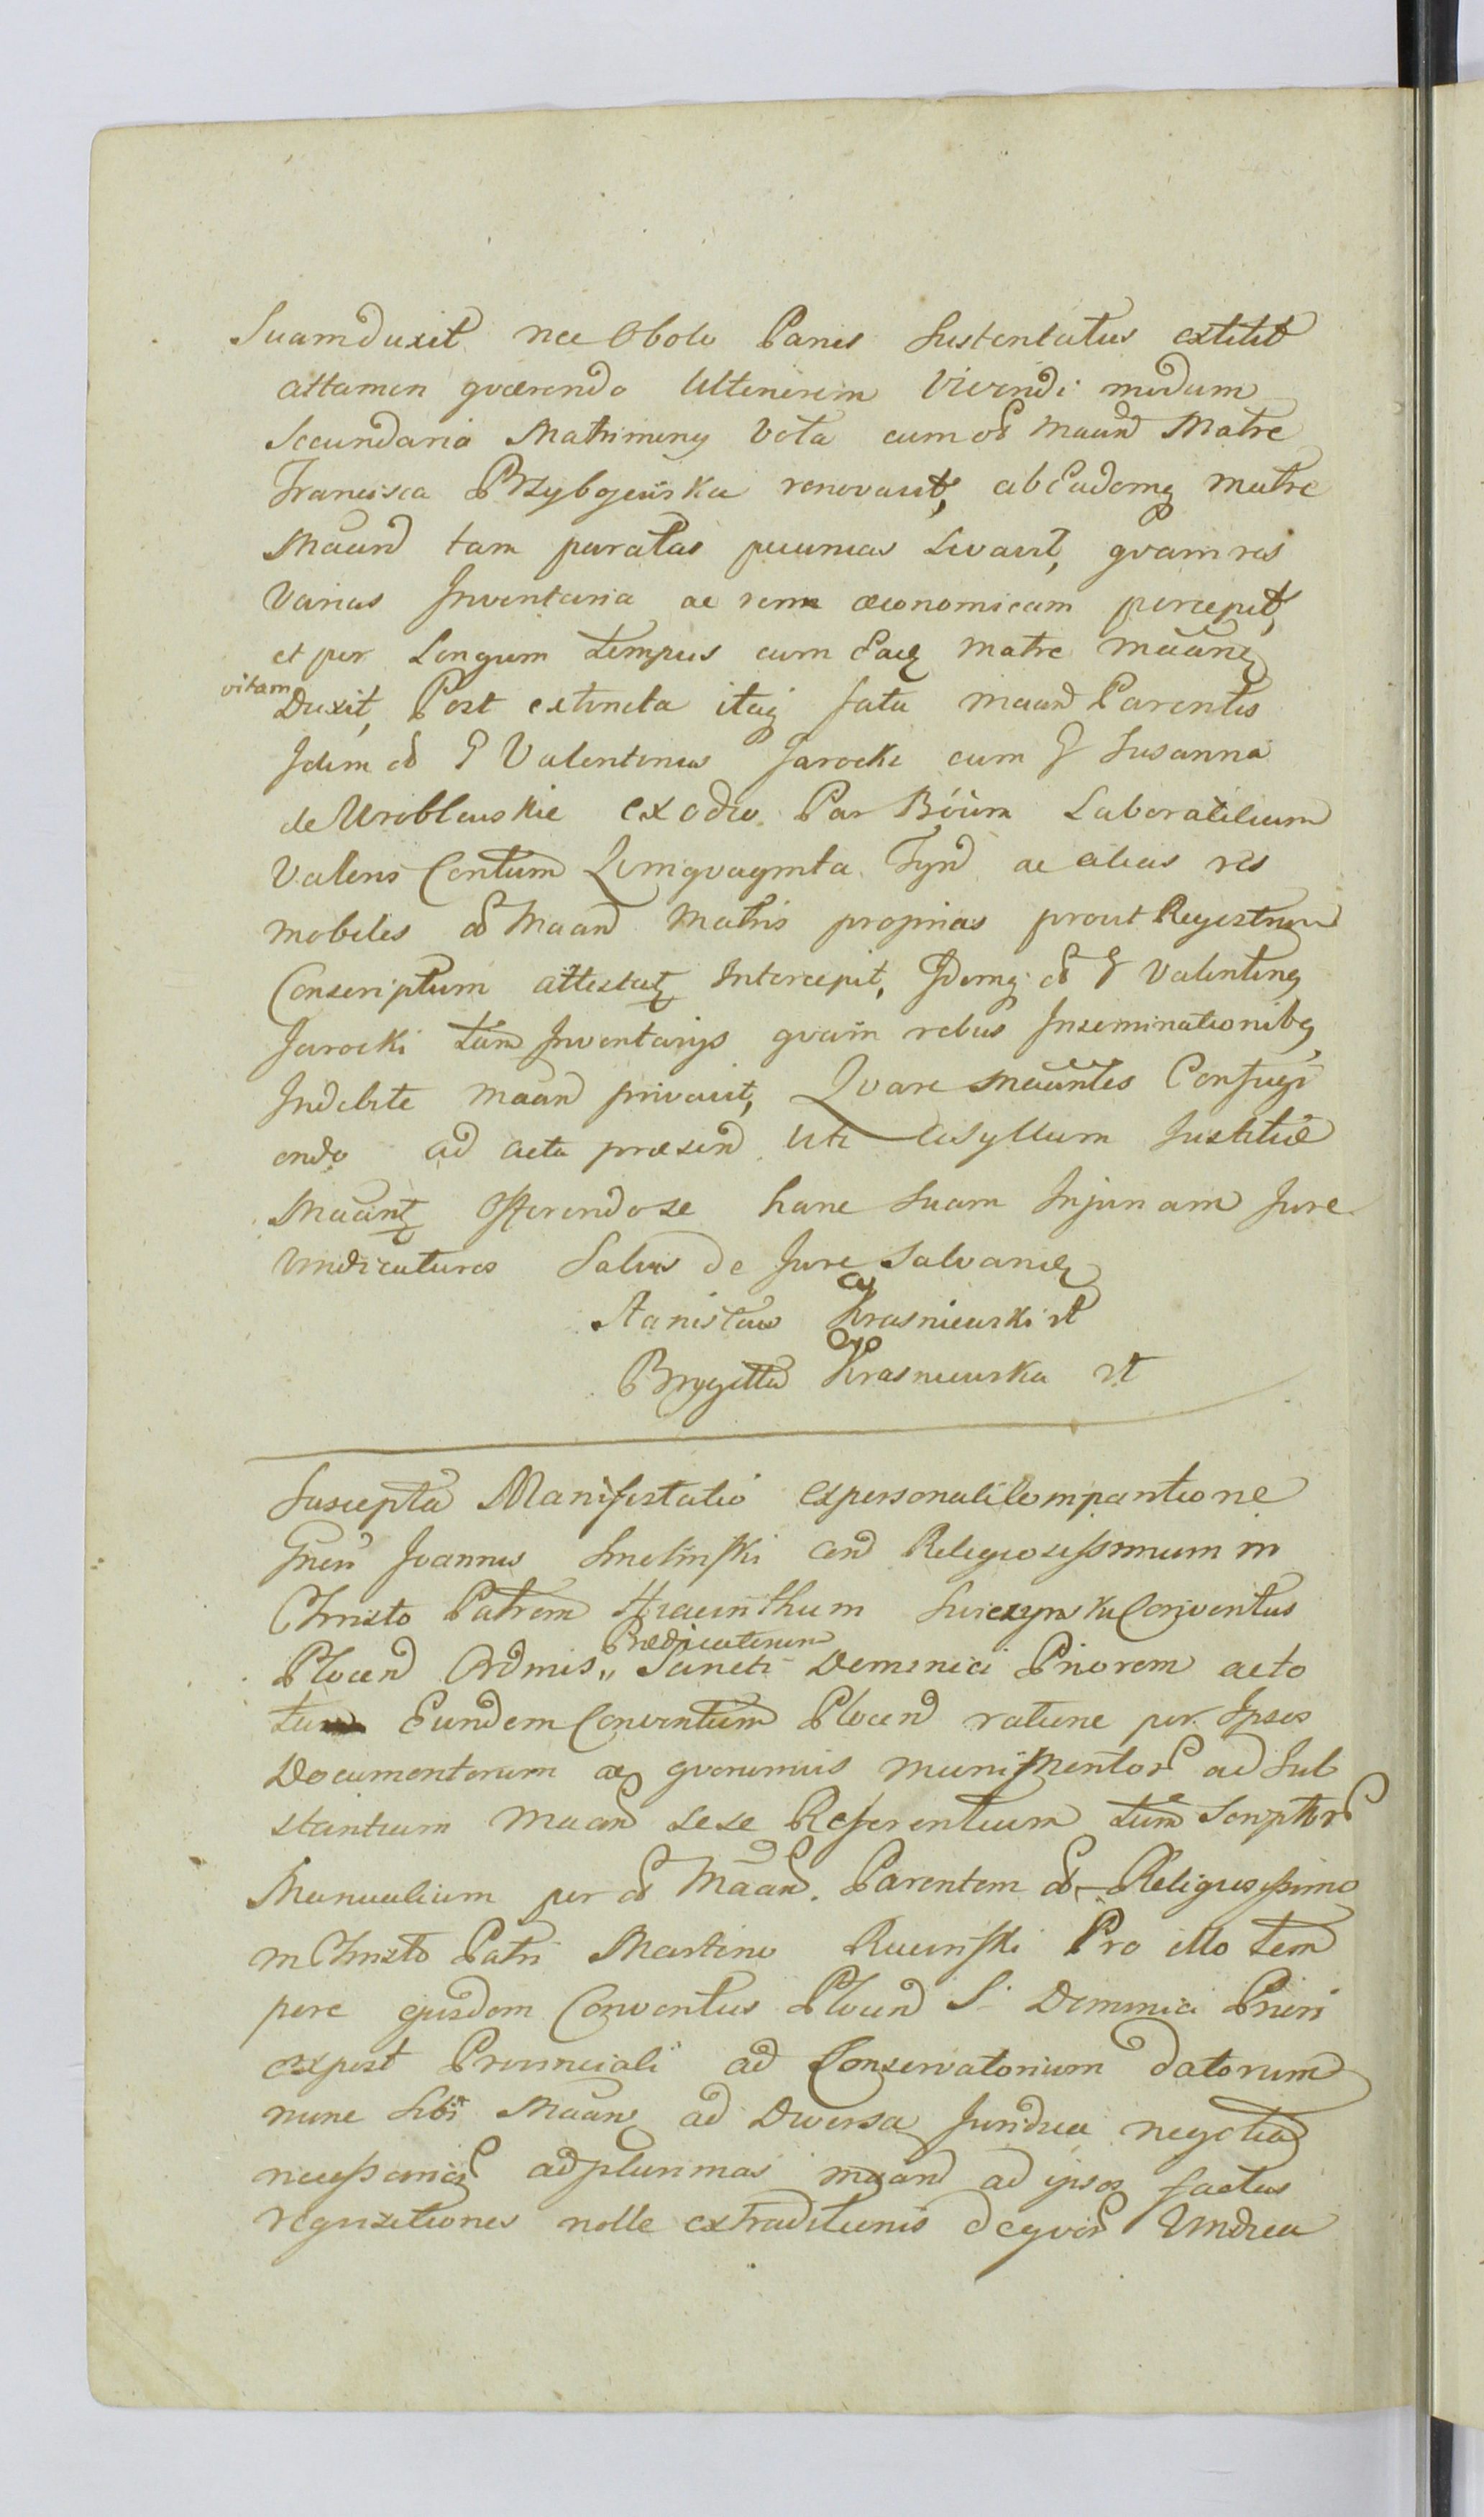 Suam duxit nec Obolo Panis Sustentatus extitit
attamen qværendo Ulteriorem Vivendi modum
Secundario Matrimony Vota cum Maand Matre
Francisca Przybojewska renovavit, ab Eademq matre
Maand tam paratas pecunias Levavit, qvam res
Varias Inventaria ac rem œconomicam percepit,
et per Longum tempus cum Eadq matre maanq
vitam Duxit, Post extincta itaq fata maand Parentis
Idem Valentinus Jarocki cum Susanna
de Wroblewskie exodio Par Boum Laboratilium
Valens Centum Qvinqvaginta Tynd ac alias res
mobiles Maand Matris proprias prout Regestrum
Conscriptum attestatq Intercepit, Idemq Valentinq
Jarocki tam Inventarys qvam rebus Inseminationibq
Indebite maand privavit, Qvare maantes Confugi
endo ad acta præsend Uti Asyllum Justitiæ
Maantq Offerendo se hanc Suam Injuriam Jure
Vindicaturos Salvis de Jure Salvandq
Stanislaw Krasniewski
Brygitta Krasniewska
Suscepta Manifestatio ex personali Comparitione
Gnesi Joannis Smolinski Religiosissimum in
Christo Patrem Hiacinthum Conventus
Plocend Ordinis Prædicatorum Sancti Dominici Priorem acto
Eundem Conventum Plocend ratione per Ipsos
Documentorum ac qvorumvis munimentor ad Sub
stantiam maand sese Referentium tum Scriptor
Manualium per Maand Parentem Religiosissimo
in Christo Patri Martino Pro illo tem
pore ejusdem Conventus Plocend S. Dominici Priori
expost Provinciali ad Conservatorium datorum
nunc Sibi Maanq ad Diversa Juridica negotia
necessarior ad plurimas maand ad ipsos factas
reqvisitiones nolle extraditionis deqvor Vindica